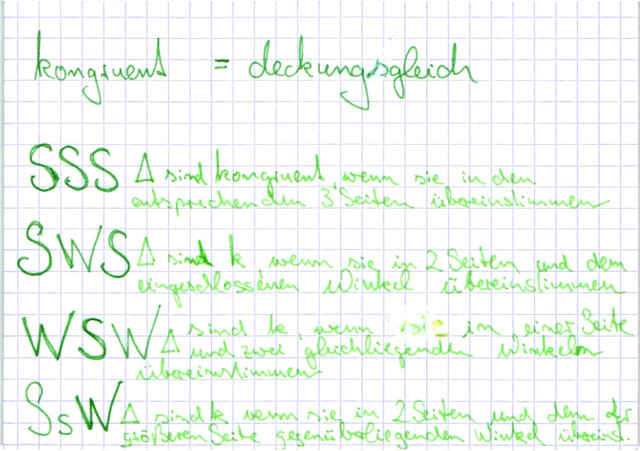 kongruent = deckungsgleich
SSS Δ sind kongruent, wenn sie in den
entsprechenden 3 Seiten übereinstimmen
SWS Δ sind k, wenn sie in 2 Seiten und dem
eingeschlossenen Winkel übereinstimmen
WSW Δ sind k, wenn sie in einer Seite
und zwei gleichliegenden Winkeln
übereinstimmen
SsW Δ sind k wenn sie in 2 Seiten und dem der
größeren Seite gegenüberliegenden Winkel übereins.